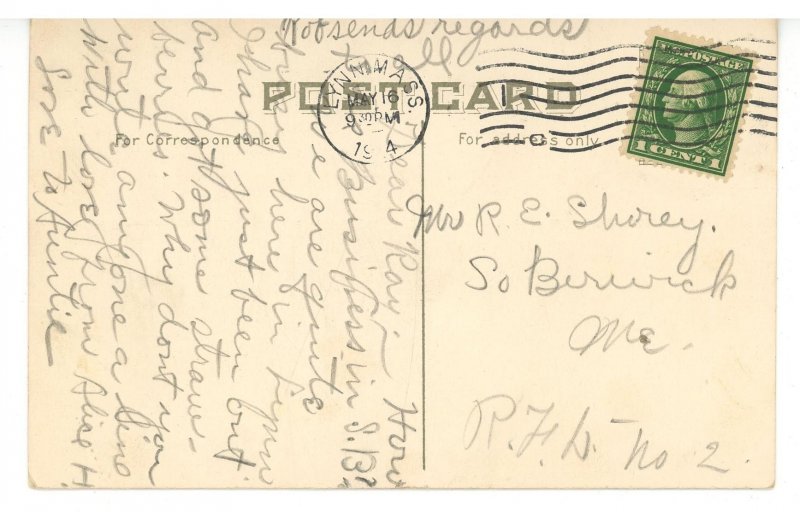 Rob sends regards
to all
POST CARD
For Correspondence
For address only
LYNN, MASS.
MAY 16
9 30 PM
1914
U.S. POSTAGE
1 CENT 1
Dear Ray:- How
is business in S.B?
We are quite
here in Lynn
I have just been out
and got some straw-
berries. Why don't you
write anyone a line
With love from Alice H.
Love to Auntie
Mr R. E. Shorey.
So Berwick
Me.
R.F.D. No 2.